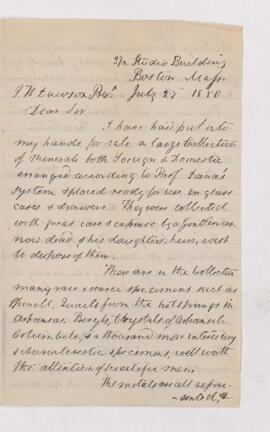 Studio Building
Boston Mass.
July 27 1880
Dear Sir
I have had put into
my hands for sale a large Collection
of Minerals both Foreign & Domestic
arranged according to Prof Dana's
System & placed ready for use in glass
cases & drawers. They were collected
with great care & expense by a Gentleman
now dead, & his daughters, heirs, wish
to dispose of them.
There are in the Collection
many rare & scarce specimens such as
Spinell, Quartz from the hot springs in
Arkansas. Beryls, Crystals of
Columbite, & a thousand more interesting
& characteristic specimens, well worth
the attention of scientific men.
The metals are all repre-
sented, &